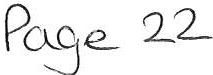 Page 22